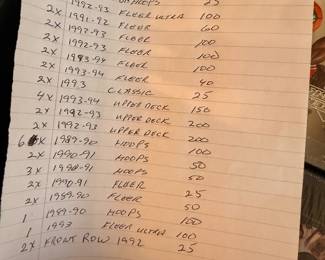 2x 1992-93 HOOPS 25
2x 1991-92 FLEER ULTRA 100
2x 1992-93 FLEER 60
2x 1992-93 FLEER 100
2x 1992-93 FLEER 100
2x 1993-94 FLEER 100
2x 1993-94 FLEER 40
2x 1993 CLASSIC 25
4x 1993-94 UPPER DECK 150
2x 1992-93 UPPER DECK 200
2x 1992-93 UPPER DECK 200
6x 1989-90 HOOPS 100
2x 1990-91 HOOPS 50
3x 1990-91 HOOPS 50
2x 1990-91 FLEER 25
2x 1989-90 FLEER 50
1 1989-90 HOOPS 100
1 1993 FLEER ULTRA 100
2x FRONT ROW 1992 25